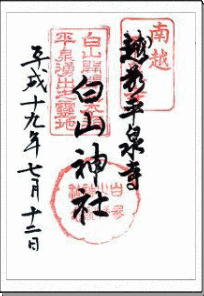 南越
越前平泉寺
白山開祖
平泉湧出地霊地
白山神社
平成十九年七月十二日